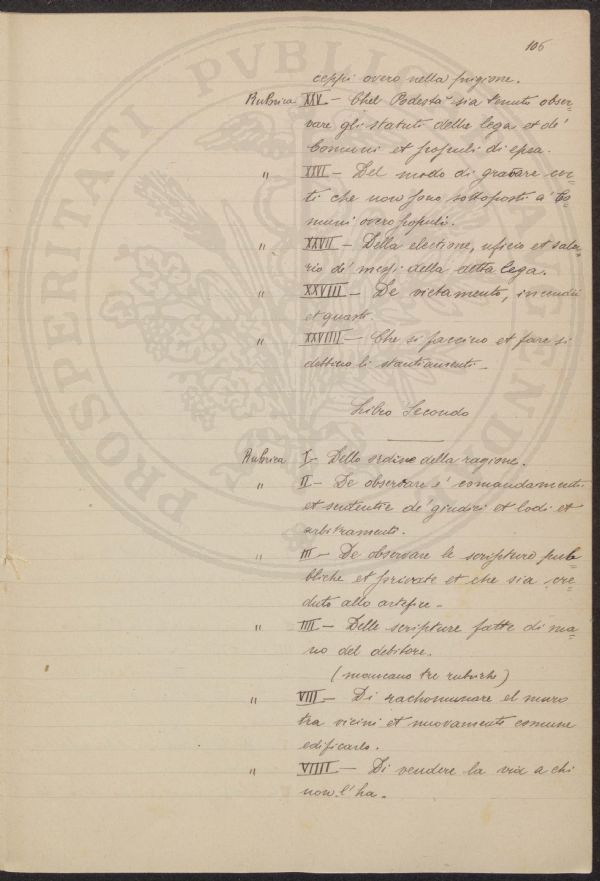 106
ceppi overo nella prigione.
Rubrica XXV — Chel Podestà sia tenuto obser=
vare gli statuti della lega et de'
Comuni et popoli di epsa.
" XXVI — Del modo di gravare cer=
ti che non sono sottoposti a' Co=
muni overo popoli.
" XXVII — Della electione, uficio et sala=
rio de' messi della detta lega.
" XXVIII — De vietamento, incendii
et guasti.
" XXVIIII — Che si faccino et fare si
debbino li stantiamenti —
Libro Secondo
Rubrica I — Dello ordine della ragione.
" II — De observare e' comandamenti
et sententie de' giudici et lodi et
arbitramenti.
" III — De observare le scripture pub=
bliche et private et che sia cre=
duto allo artefice —
" IIII — Delle scripture fatte di ma=
no del debitore.
(mancano tre rubriche)
" VIII — Di rachomunare el muro
tra vicini et nuovamente comune
edificarlo.
" VIIII — Di vendere la via a chi
non l'ha —
PROSPERITATI PVBLICAE AVGENDAE